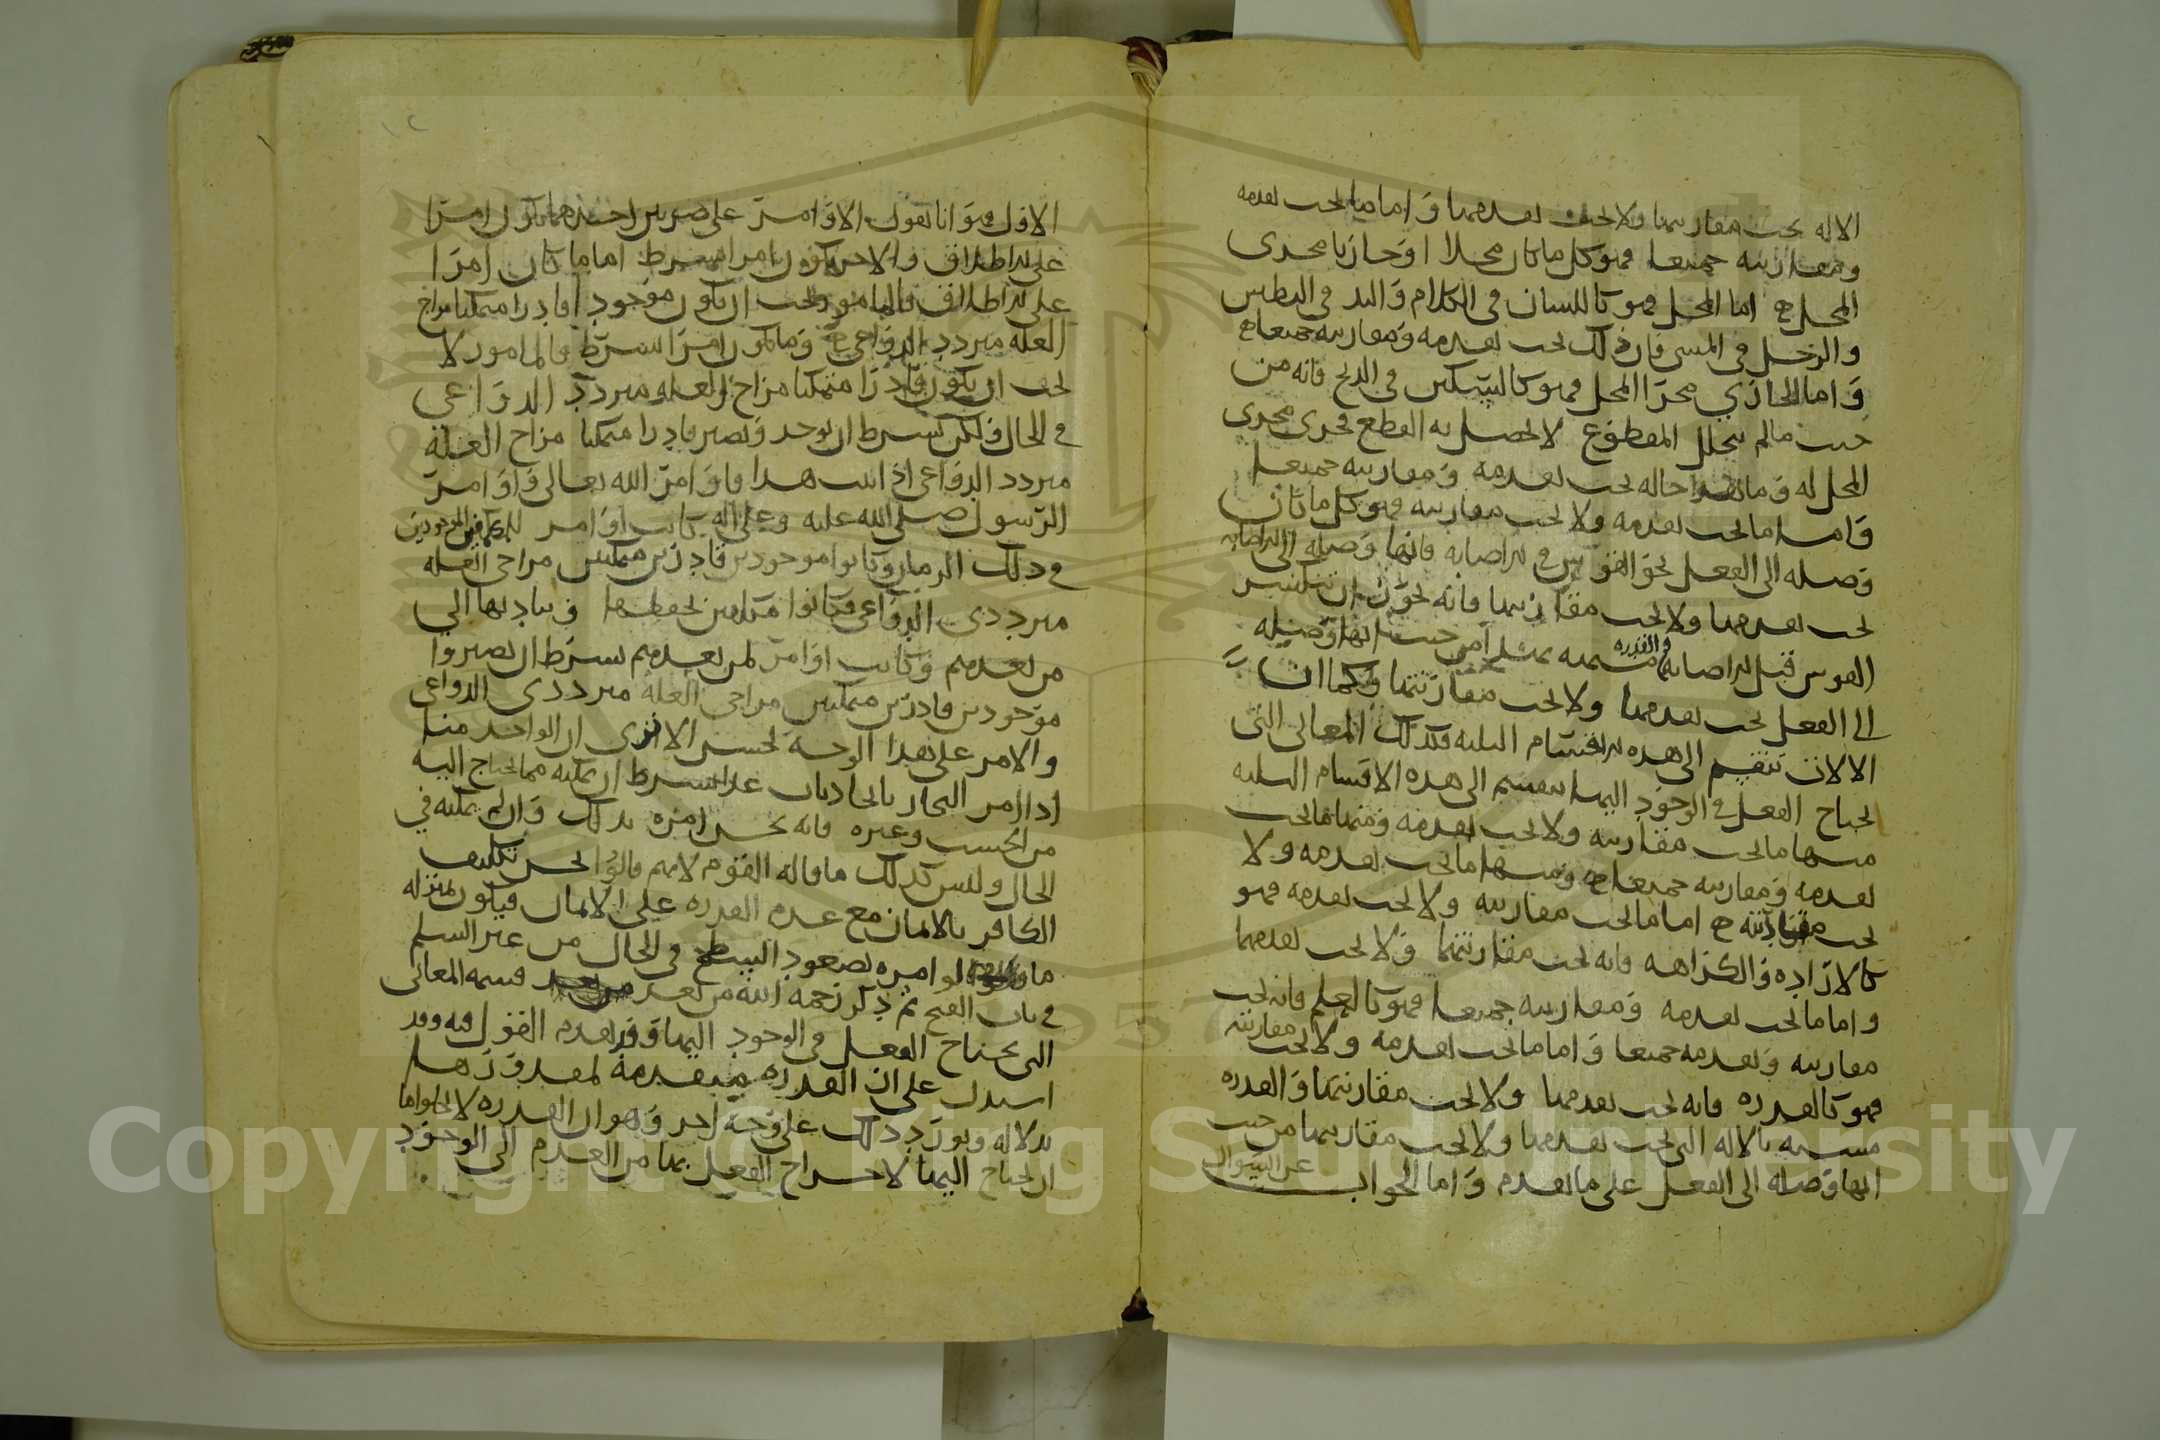 الاله يجب مقارنتها ولا يجب تقدمها وَاما ما يجب تقدمه
ومقارنته جميعا فهو كل ما كان محلا اوجاريا مجرى
المحل ه اما المحل فهو كاللسان في الكلام وَاليد في البطش
والرجل في المشي فان ذلك يجب تقدمه وَمقارنته جميعا ه
وَاما الجاري مجرَا المحل فهو كالسكين في الذبح فانه من
حيث مالم يتخلل المقطوع لا يحصل به القطع فجرى مجرى
المحل له وَما هذا حاله يجب تقدمه وَمقارنته جميعا
وَامـا ما يجب تقدمه ولا يجب مقارنته فهو كل ما كان
وَصله الى الفعل نحوَ القوس في الاصابه فانها وَصله الى الاصابه
يجب تقدمها ولا يجب مقارنتها فانه يجوز ان ينكسر
القوس قبل الاصابه والقدره مشبهه بمثله من حيث انها وَصله
الى الفعل يجب تقدمها ولا يجب مقارنتها وَكما ان
الالات تنقسم الى هذه الاقسام الثلثه فكذلك المعاني التي
يحتاج الفعل في الوجود اليها ينقسم الى هذه الاقسام الثلثه
منها ما يجب مقارنته ولا يجب تقدمه وَمنها ما يجب
تقدمه وَمقارنته جميعا ه وَمنها ما يجب تقدمه ولا
يجب مقارنته ه اما ما يجب مقارنته ولا يجب تقدمه فهو
كالارَاده وَالكرَاهه فانه يجب مقارنتها وَلا يجب تقدمها
واما ما يجب تقدمه وَمقارنته جميعا فهو كالعلم فانه يجب
مقارنته وَتقدمه جميعا وَاما ما يجب تقدمه ولا يجب مقارنته
فهو كالقدره فانه يجب تقدمها ولا يجب مقارنتها وَالقدره
مشبهه بالاله التي يجب تقدمها ولا يجب مقارنتها من حيث
انها وَصله الى الفعل على ما تقدم وَاما الجواب عن السوال
١٢
الاول فهوَ انا نقول الاوَامرَ على ضربين احدهما يكون امرَا
على الاطلاق والاخر يكون امرا بشرط اما ما كان امرَا
على الاطلاق فالمامور يجب ان يكون موجود اقادرا متمكنا مزاح
العله متردد الدواعي ه وَما يكون امرَا بشرَط فالمامور لا
يجب ان يكون قادرَا متمكنا مزاح العله متردد الدوَاعي
في الحال ولكن بشرط ان يوجد وَيصير قادرا متمكنا مزاح العله
متردد الدواعي اذا ثبت هذا فاوَامرَ الله تعالى وَاوَامرَ
الرسول صلى الله عليه وعلى اله كانت اوَامر للمكلفين الموجودين
في ذلك الزمان وكانوا موجودين قادرين متمكنين مزاحي العله
مترددي الدواعي وكانوا مكلفين بحفظها وتاديتها الى
من بعدهم وَكانت اوَامرَ لمن بعدهم بشرَط ان يصيروا
موَجودين قادرين متمكنين مزاحي العلة مترددي الدواعي
والامر على هذا الوجه يحسن الا ترى ان الواحد منا
اذا امر النجار بايجاد باب غدا بشرط ان يمكنه مما يحتاج اليه
من الخشب وغيره فانه يحسن امرَه بذلك وَان لم يمكنه في
الحال وليس كذلك ما قاله القوم لانهم قالوا يحسن تكليف
الكافر بالايمان مع عدم القدره على الايمان فيكون بمنزله
ما لو امره بصعود السطح في الحال من غير السلم
في باب القبح ثم ذكر رَحمه الله من بعد قسمه المعاني
التي يحتاج الفعل في الوجود اليها وَقد تقدم القول فيه وقد
استدل على ان القدره متقدمة لمقدورَها
بدلاله ويورَد ذلك على وَجه اخر وَهو ان القدره لا يخلوا اما
ان يحتاج اليها لاخراج الفعل بها من العدم الى الوجود
Copyright © King Saud University
1957